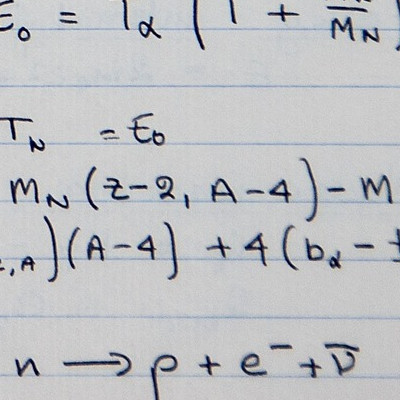 E₀ = Tα ( 1 + / M_N )
T_N = E₀
M_N (z-2, A-4) - M
z,A )(A-4) + 4(bα -
n → p + e⁻ + ν̄